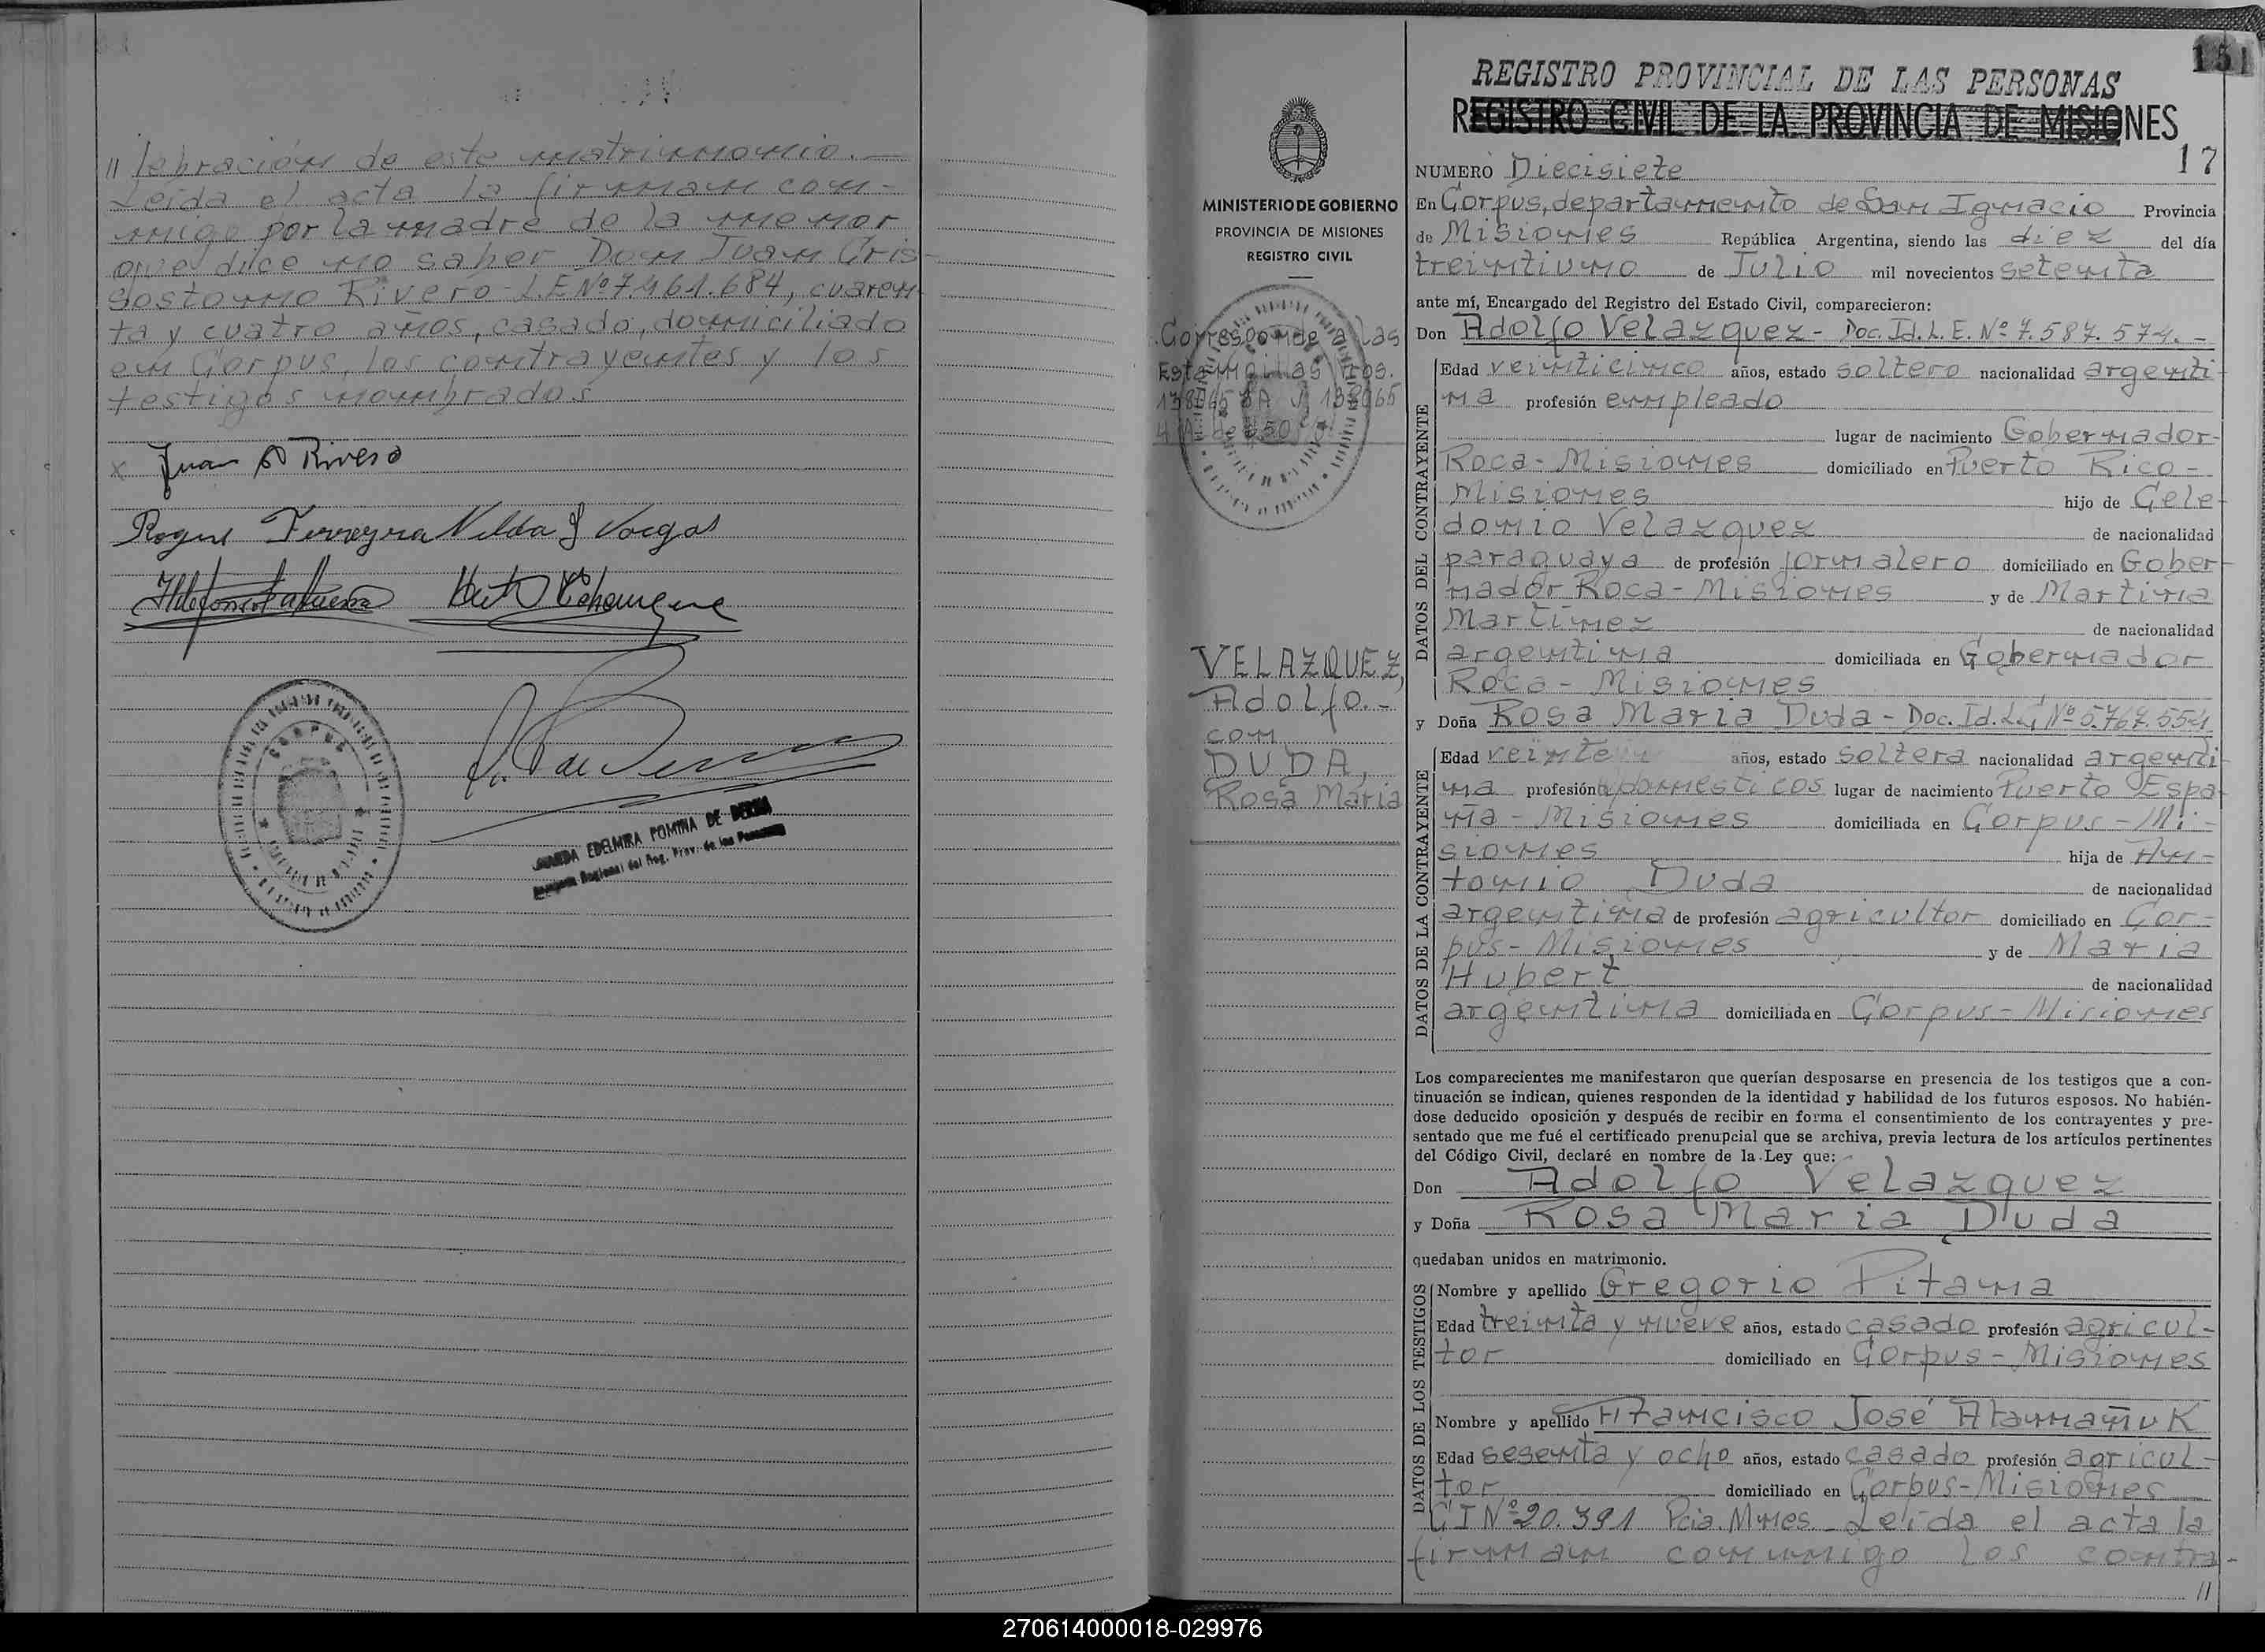 // lebración de este matrimonio.—
Leída el acta la firman con-
migo por la madre de la menor
que dice no saber Don Juan Cris-
sostomo Rivero-L.E Nº 7.461.684, cuaren-
ta y cuatro años, casado, domiciliado
en Corpus, los contrayentes y los
testigos nombrados
x Juan Rivero
Roque Ferreyra Nilda J Vargas
CORPUS
EDELMIRA POMINA DE
Regional del Reg. Prov. de las Personas
151
MINISTERIO DE GOBIERNO
PROVINCIA DE MISIONES
REGISTRO CIVIL
Corresponde a las
Estampillas Nros.
VELAZQUEZ,
Adolfo.-
con
DUDA,
Rosa María
REGISTRO PROVINCIAL DE LAS PERSONAS
REGISTRO CIVIL DE LA PROVINCIA DE MISIONES
NUMERO Diecisiete 17
En Corpus, departamento de San Ignacio Provincia
de Misiones República Argentina, siendo las diez del día
treintiuno de Julio mil novecientos setenta
ante mí, Encargado del Registro del Estado Civil, comparecieron:
Don Adolfo Velazquez- Doc. Id. L.E. Nº 7.587.574.-
DATOS DEL CONTRAYENTE
Edad veinticinco años, estado soltero nacionalidad argenti-
na profesión empleado
lugar de nacimiento Gobernador-
Roca-Misiones domiciliado en Puerto Rico-
Misiones hijo de Cele-
donio Velazquez de nacionalidad
paraguaya de profesión jornalero domiciliado en Gober-
nador Roca-Misiones y de Martina
Martinez de nacionalidad
argentina domiciliada en Gobernador
Roca-Misiones
y Doña Rosa María Duda-Doc. Id. Nº 5.767.551
DATOS DE LA CONTRAYENTE
Edad veinte años, estado soltera nacionalidad argenti-
na profesión domesticos lugar de nacimiento Puerto Espa-
ña-Misiones domiciliada en Corpus-Mi-
siones hija de An-
tonio Duda de nacionalidad
argentina de profesión agricultor domiciliado en Cor-
pus-Misiones y de María
Hubert de nacionalidad
argentina domiciliada en Corpus-Misiones
Los comparecientes me manifestaron que querían desposarse en presencia de los testigos que a con-
tinuación se indican, quienes responden de la identidad y habilidad de los futuros esposos. No habién-
dose deducido oposición y después de recibir en forma el consentimiento de los contrayentes y pre-
sentado que me fué el certificado prenupcial que se archiva, previa lectura de los artículos pertinentes
del Código Civil, declaré en nombre de la Ley que:
Don Adolfo Velazquez
y Doña Rosa María Duda
quedaban unidos en matrimonio.
DATOS DE LOS TESTIGOS
Nombre y apellido Gregorio Pitana
Edad treinta y nueve años, estado casado profesión agricul-
tor domiciliado en Corpus-Misiones
Nombre y apellido Francisco José Atamañuk
Edad sesenta y ocho años, estado casado profesión agricul-
tor domiciliado en Corpus-Misiones
CI Nº 20.391 Pcia. Mnes-Leída el acta la
firman conmigo los contra-
//
270614000018-029976